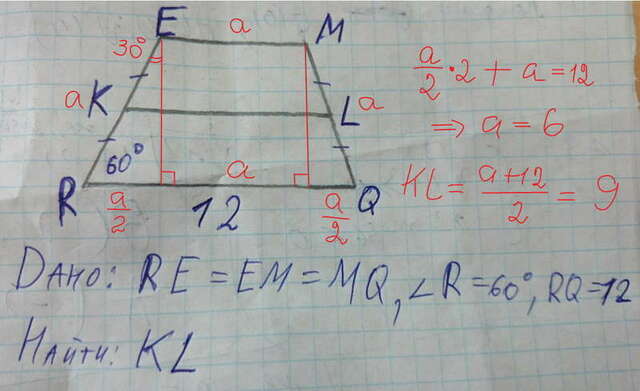 E a M
30°
a K L a
60° a
R a/2 12 a/2 Q
a/2 · 2 + a = 12
⇒ a = 6
KL = a+12/2 = 9
Дано: RE = EM = MQ, ∠R = 60°, RQ = 12
Найти: KL